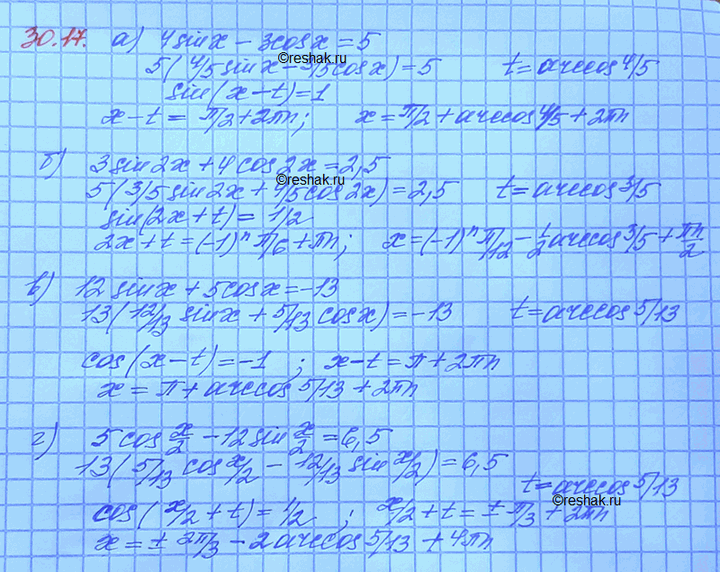 30.17. а) 4sinx - 3cosx = 5
©reshak.ru
5(4/5sinx - 3/5cosx) = 5 t = arccos4/5
sin(x-t) = 1
x-t = π/2 + 2πn; x = π/2 + arccos4/5 + 2πn
б) 3sin2x + 4cos2x = 2,5
©reshak.ru
5(3/5sin2x + 4/5cos2x) = 2,5 t = arccos3/5
sin(2x+t) = 1/2
2x+t = (-1)ⁿπ/6 + πn; x = (-1)ⁿπ/12 - 1/2arccos3/5 + πn/2
в) 12sinx + 5cosx = -13
13(12/13sinx + 5/13cosx) = -13 t = arccos5/13
cos(x-t) = -1 ; x-t = π + 2πn
x = π + arccos5/13 + 2πn
г) 5cos x/2 - 12sin x/2 = 6,5
13(5/13cosx/2 - 12/13sinx/2) = 6,5
t = arccos5/13
©reshak.ru
cos(x/2 + t) = 1/2 ; x/2 + t = ±π/3 + 2πn
x = ±2π/3 - 2arccos5/13 + 4πn